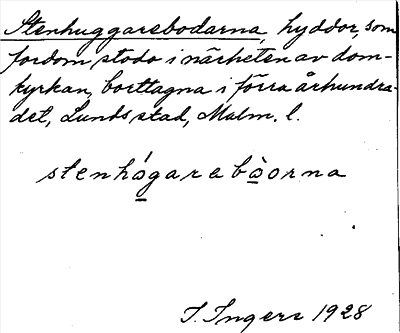 Stenhuggarebodarna, hyddor, som
fordom stodo i närheten av dom-
kyrkan, borttagna i förra århundra-
det, Lunds stad, Malm. l.
stenhógarebòorna
I. Ingers 1928